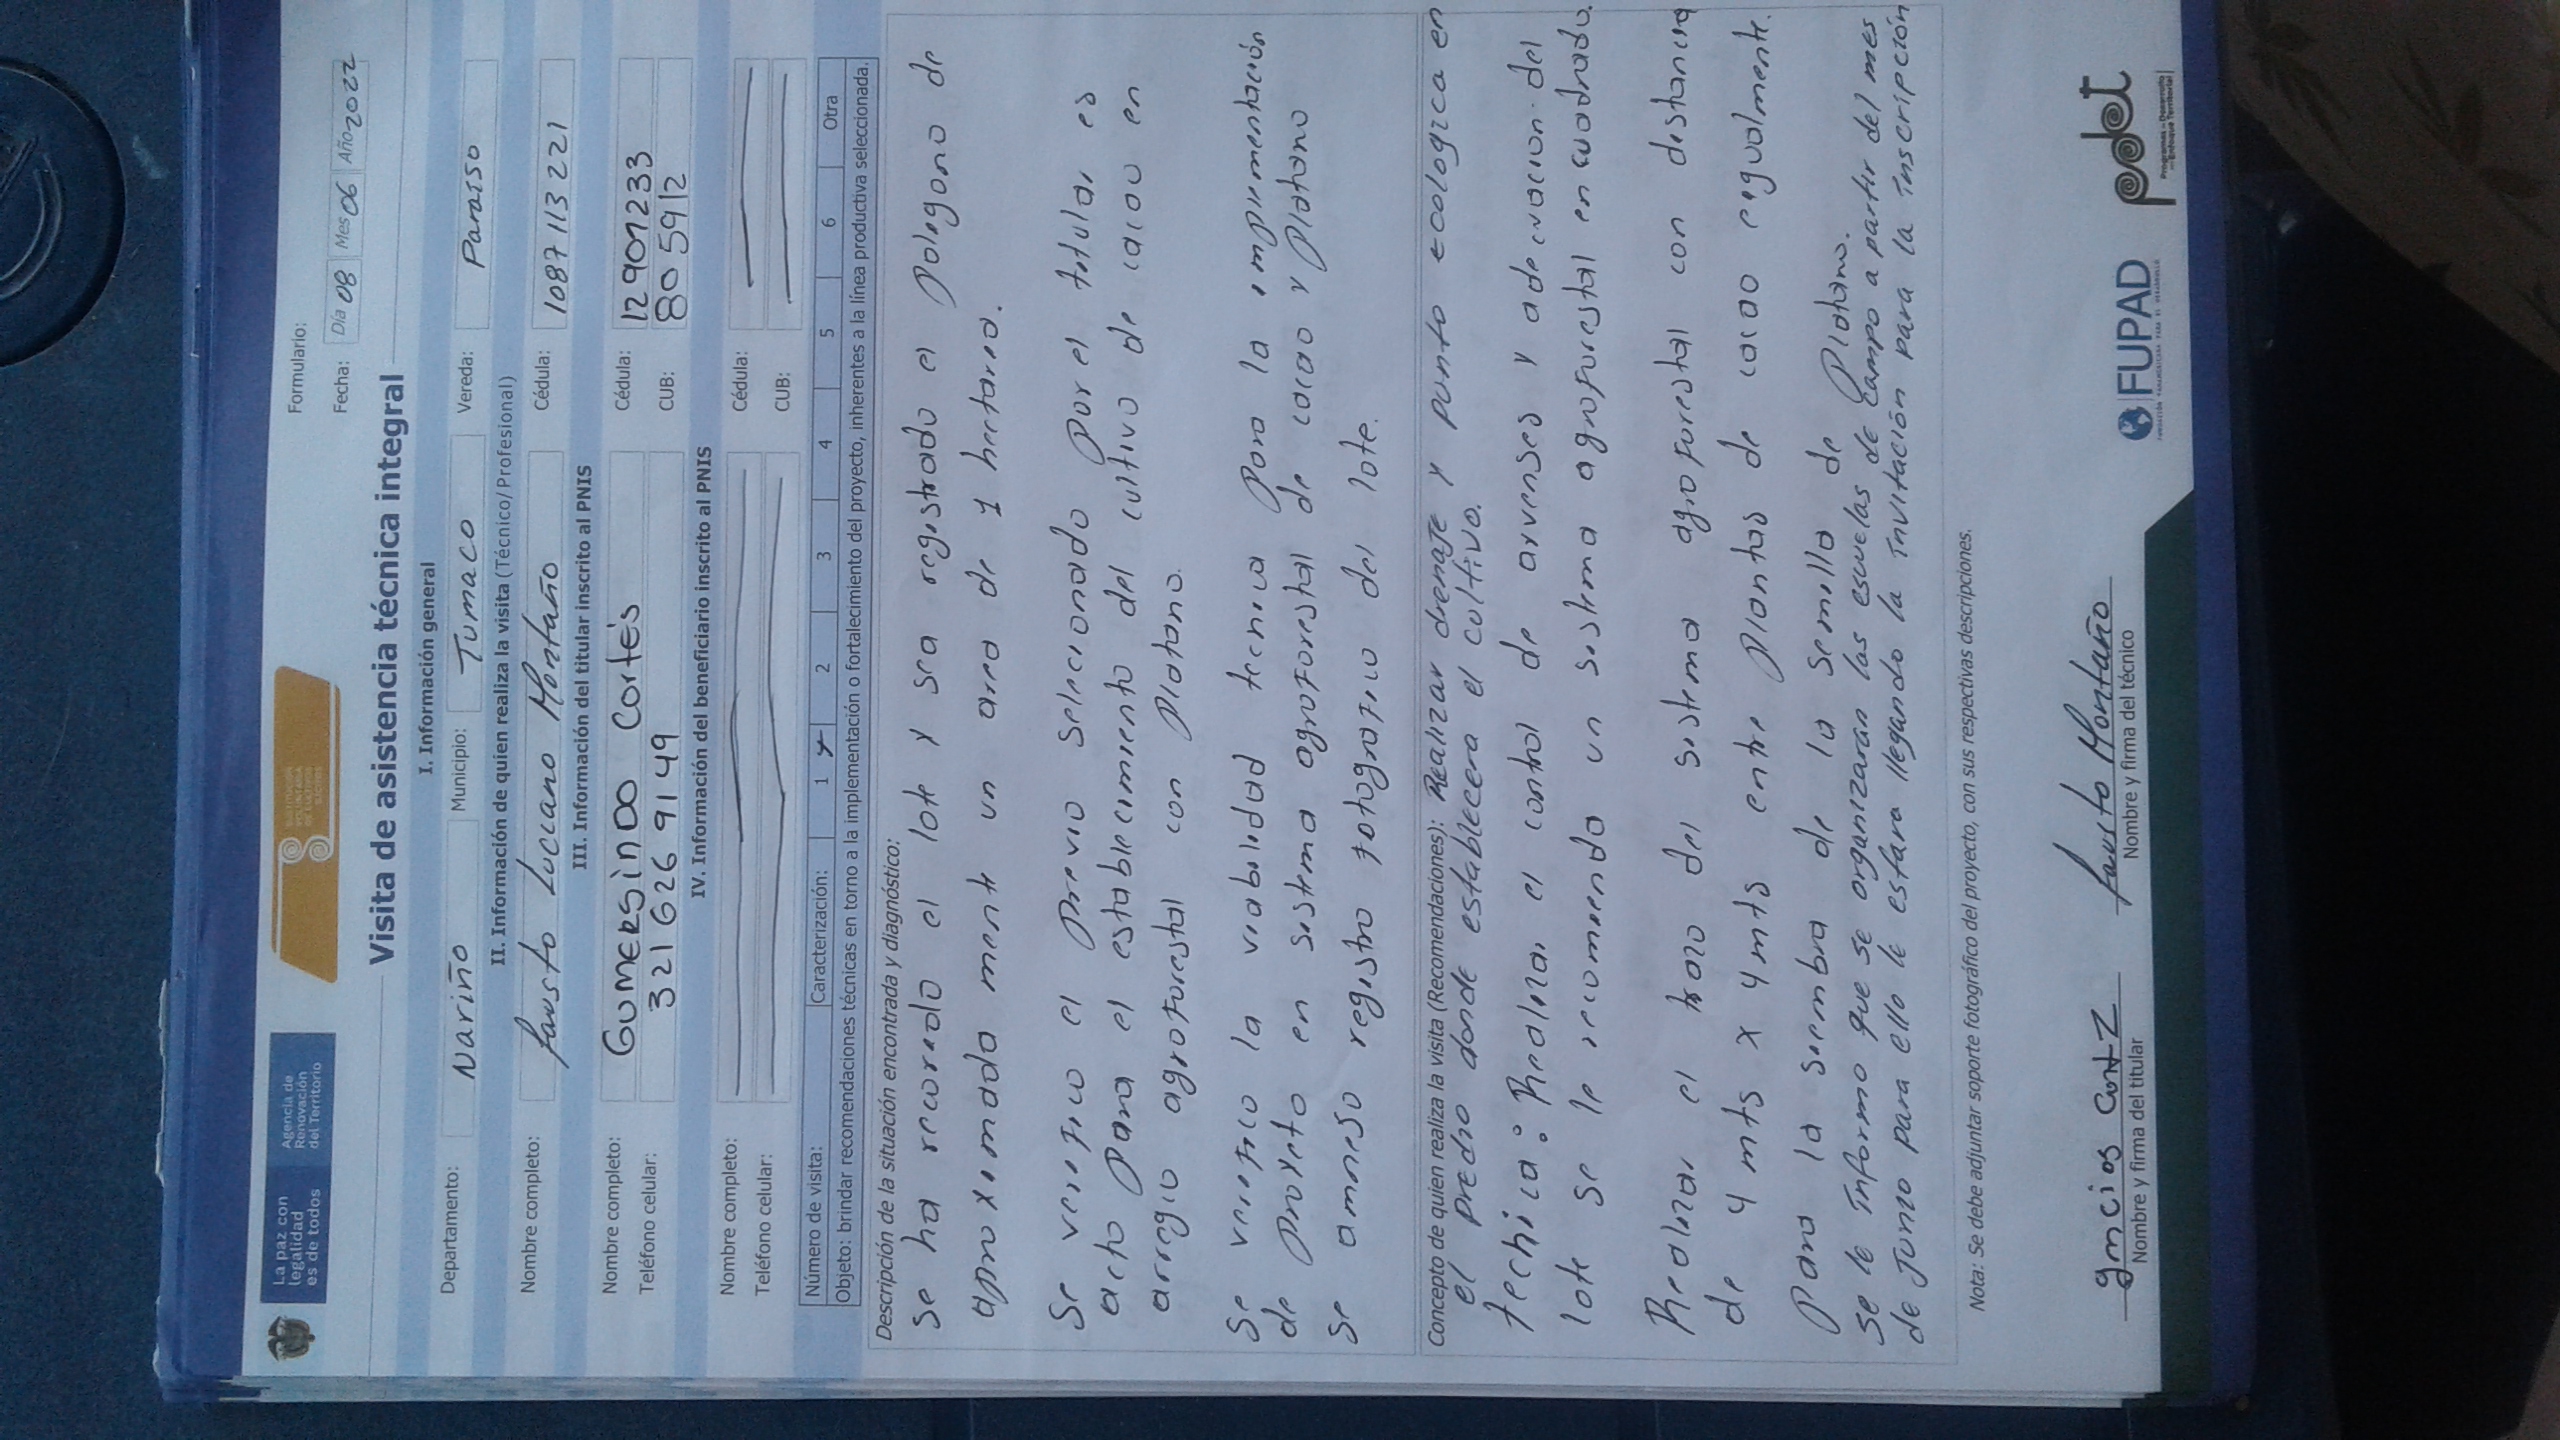 La paz con
legalidad
es de todos
Agencia de
Renovación
del Territorio
Formulario:
Fecha: Día 08 Mes 06 Año 2022
Visita de asistencia técnica integral
I. Información general
Departamento: Nariño Municipio: Tumaco Vereda: Paraiso
II. Información de quien realiza la visita (Técnico/Profesional)
Nombre completo: fausto Luciano Montaño Cédula: 1087113221
III. Información del titular inscrito al PNIS
Nombre completo: GUMERSINDO Cortés Cédula: 12901233
Teléfono celular: 3216269149 CUB: 805912
IV. Información del beneficiario inscrito al PNIS
Nombre completo: Cédula:
Teléfono celular: CUB:
Número de visita: Caracterización: 1 x 2 3 4 5 6 Otra
Objeto: brindar recomendaciones técnicas en torno a la implementación o fortalecimiento del proyecto, inherentes a la línea productiva seleccionada.
Descripción de la situación encontrada y diagnóstico:
Se ha recorrido el lote y sea registrado el poligono de
aproximada mente un area de 1 hectarea.
Se verifico el previo selecionado por el titular es
acto para el establecimiento del cultivo de cacao en
arreglo agroforestal con platano.
Se verifico la viabilidad tecnica para la implementación
de proyeto en sistema agroforestal de cacao y platano
Se anexo registro fotografico del lote.
Concepto de quien realiza la visita (Recomendaciones): Realizar drenaje y punto ecologica en
el predio donde establecera el cultivo.
techica: Realizar el control de arvenses y adecuacion del
lote se le recomienda un sistema agroforestal en cuadrado.
Realizar el trazo del sistema agroforestal con distancia
de 4 mts x 4 mts entre plantas de cacao e igualmente
para la siembra de la semilla de Platano.
Se le Informo que se organizaran las escuelas de campo a partir del mes
de Junio para ello le estara llegando la invitación para la inscripción
Nota: Se debe adjuntar soporte fotográfico del proyecto, con sus respectivas descripciones.
gmcios Cortz
Nombre y firma del titular
fausto Montaño
Nombre y firma del técnico
FUPAD
FUNDACIÓN PANAMERICANA PARA EL DESARROLLO
pdet
Programas de Desarrollo
con Enfoque Territorial